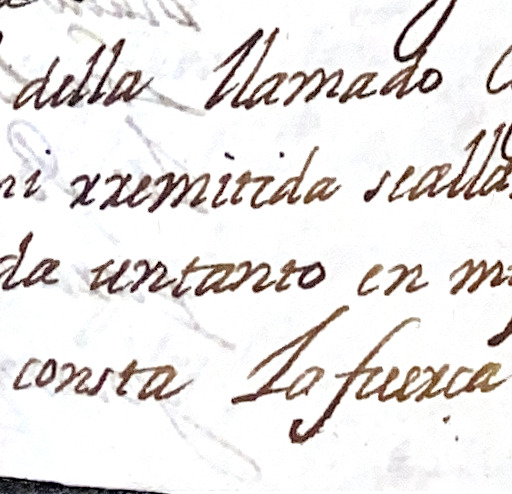 della llamado
ni xxemitida sealla
da untanto en mi
consta La fuexca